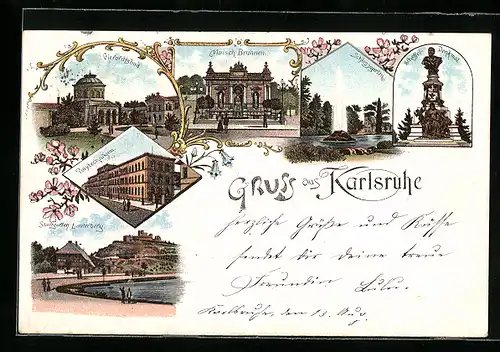 Vierordtsbad
Malsch-Brunnen
Schloßgarten
Scheffel-Denkmal
Polytechnikum
Stadtgarten Lauterberg
Gruss aus Karlsruhe
herzliche Grüße und Küsse
sendet dir deine treue
Freundin Lulu.
Karlsruhe, den 13. Aug.